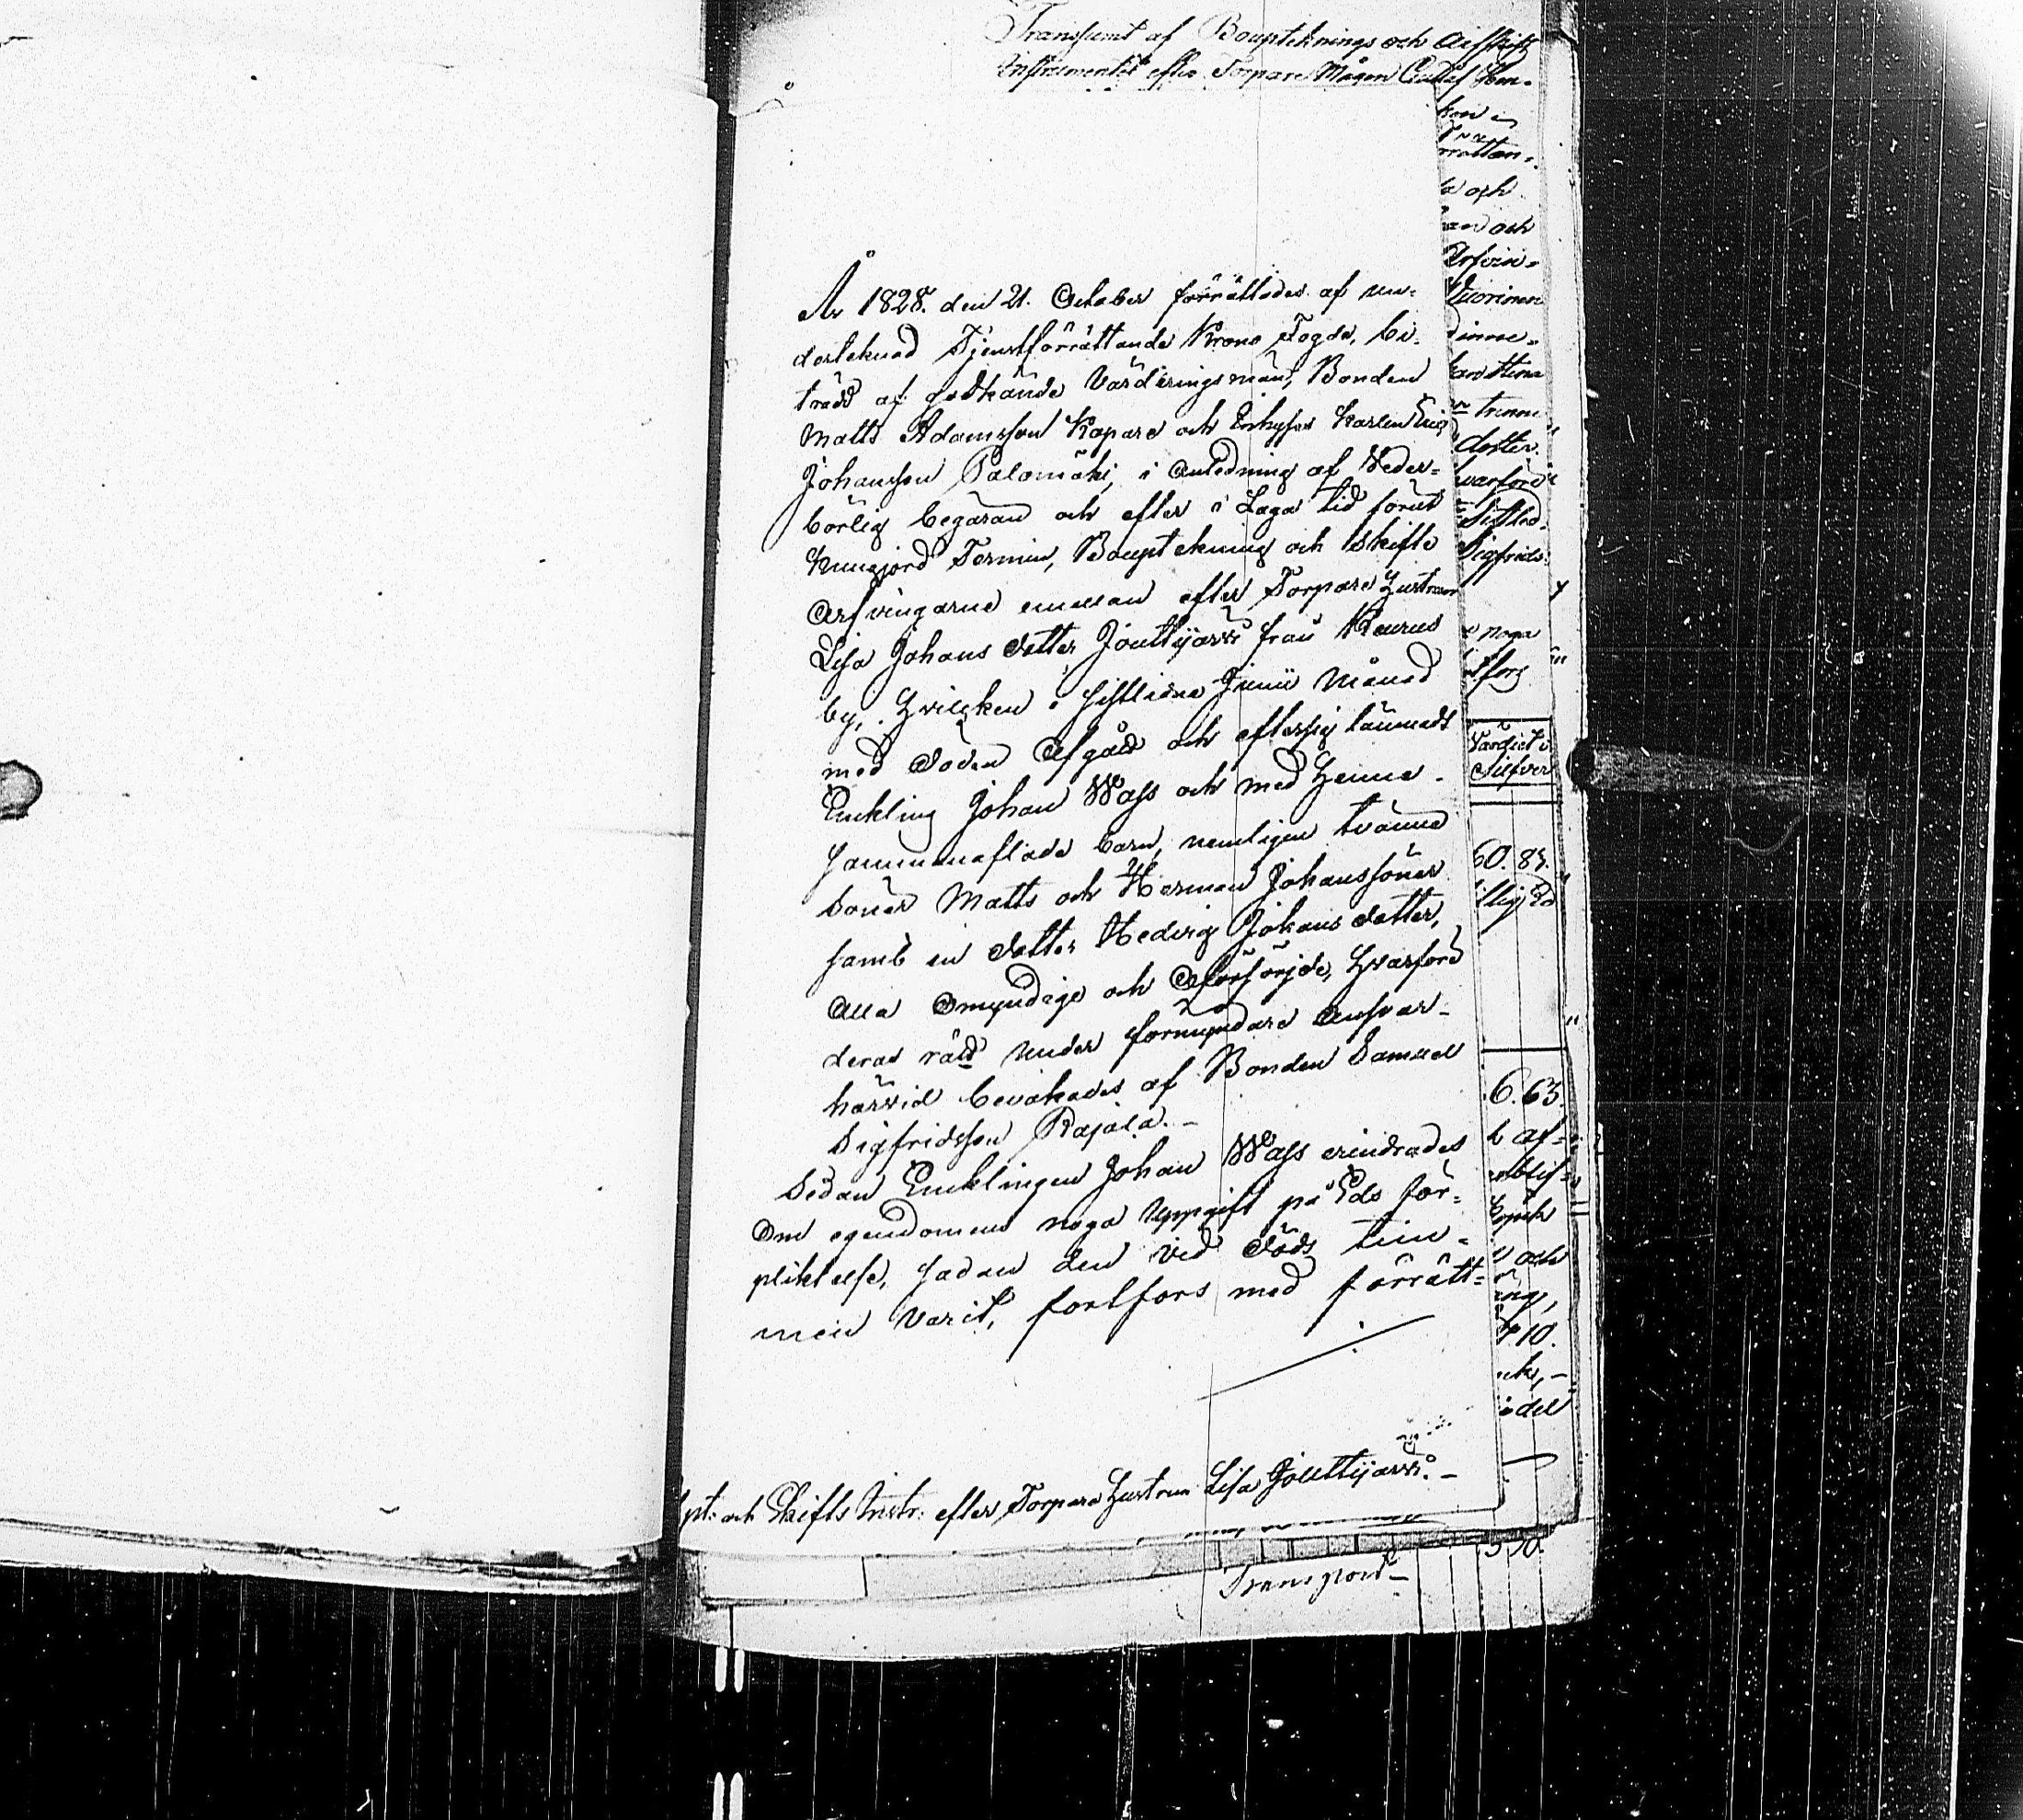 Transsumt af Boupteknings och Arfskifts
Instrumentet efter Torpare Mågen
År 1828. den 21. October förrättades af un-
derteknad Tjenstförrättande Krono Fogde, bi-
trädd af godkände Värderingsmän, Bonden
Matts Adamsson Kopare och Inhyses Karlen Eric
Johansson Palomäki, i anledning af Veder-
börlig begäran och efter i Laga tid förut
kungjord Termin, Bouptekning och Skifte
Arfvingarne emellan efter Torpare Hustrun
Lisa Johans dotter Jouttijärvi från Keurus
by, Hvilcken i sistledne Junii Månad
med döden Afgådt och eftersig lämnadt
Enkling Johan Wass och med Henne
sammanaflade barn, nemligen tvänne
Söner Matts och Herman Johanssöner
samt en dotter Hedvig Johans dotter,
Alla Omyndige och Oförsörjde, Hvarföre
deras rätt under förmyndare Ansvar
härvid bevakades af Bonden Samuel
Sigfridsson Rajala.-
Sedan Enklingen Johan Wass erindrades
Om egendomens noga Uppgift på Eds för-
pliktelse, sadan den vid döds tim-
men varit, fortfors med förrätt-
pt: och Skifts Instr: efter Torpare Hustrun Lisa Jouttijärvi.-
och
och
Arfvin-
trenne
dotter
hvarföre
Sigfrids-
noga
Värdet i
Silfver
60. 85.
6. 63.
och
10.
Transport-